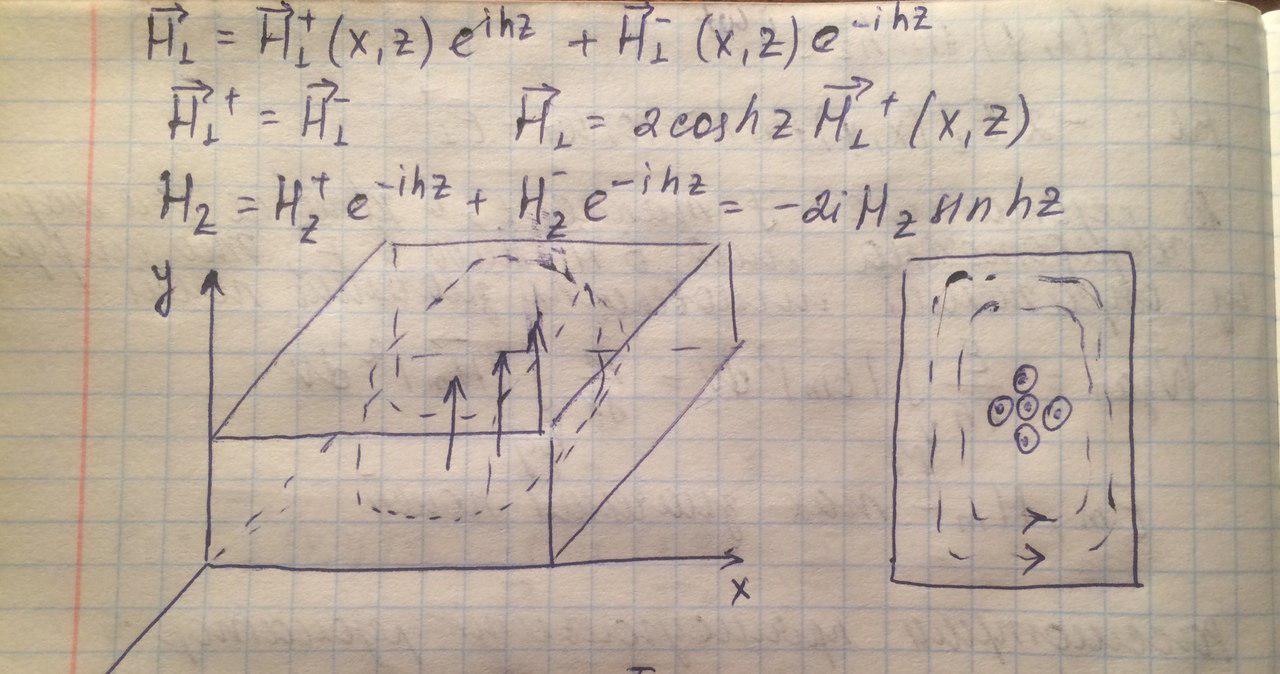 H⃗⊥ = H⃗⊥⁺(x,z) e^{ihz} + H⃗⊥⁻(x,z) e^{-ihz}
H⃗⊥⁺ = H⃗⊥⁻ H⃗⊥ = 2coshz H⃗⊥⁺(x,z)
H_z = H_z⁺ e^{-ihz} + H_z⁻ e^{-ihz} = -2i H_z sin hz
y
x